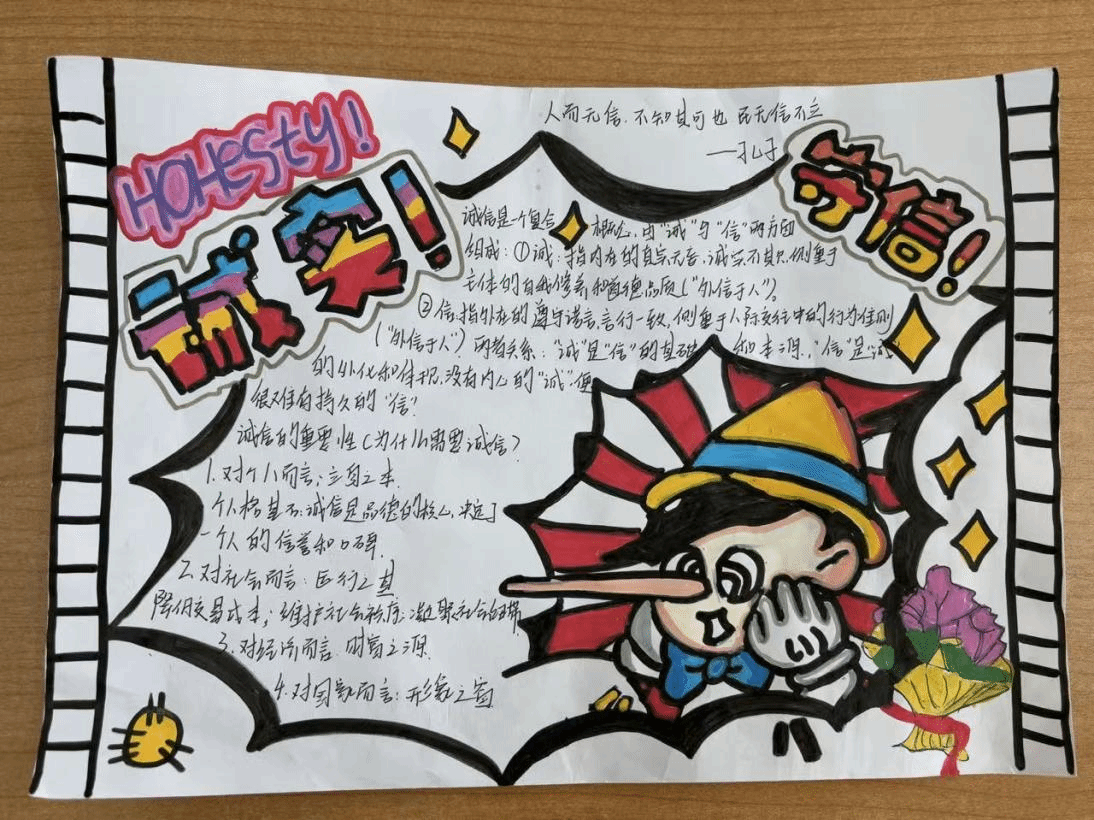 HOHesty!
诚实!
人而无信、不知其可也 民无信不立
——孔子
守信!
诚信是一个复合概念,由"诚"与"信"两方面
组成:①诚:指内在的真实无妄、诚实不欺,侧重于
主体的自我修养和道德品质("外信于人")。
②信:指外在的遵守诺言、言行一致,侧重于人际交往中的行为准则
("外信于人")两者关系:"诚"是"信"的基础和本源,"信"是"诚"
的外化和体现,没有内心的"诚",便
很难有持久的"信"!
诚信的重要性(为什么需要诚信?
1.对个人而言:立身之本.
个人格基石:诚信是品德的核心,决定了
一个人的信誉和口碑.
2.对社会而言:运行之基
降低交易成本;维护社会秩序;凝聚社会
3.对经济而言、财富之源.
4.对国家而言:形象之窗